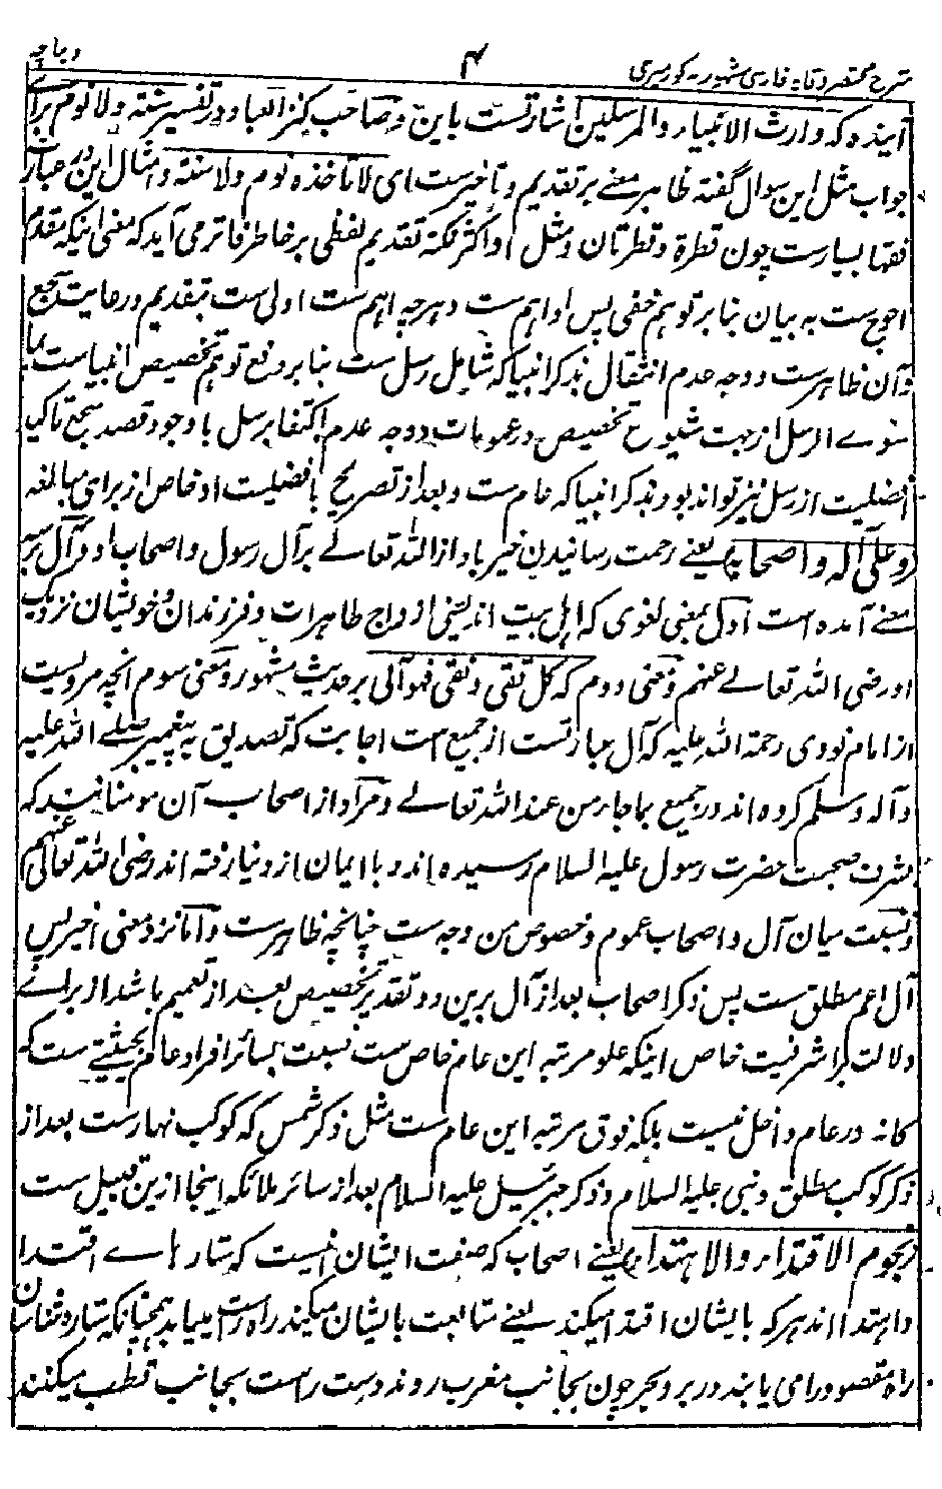 شرح مختصر وقایه فارسی مشهور به کورمیری ۴ دیباچه
آینده که وارث الانبیاء والمرسلین اشارتست باین و صاحب کنز العباد در تفسیر سنته ولا نوم برای
جواب مثل این سوال گفته ظاهر معنے بر تقدیم و تاخیرست ای لا تاخذه نوم ولا سنته و امثال این در عبارت
فقها بسیارست چون قطرة و قطرتان و مثل او اکثر نکته تقدیم لفظی بر خاطر فاتر می آید که معنی اینکه مقدم
احوج ست به بیان بنا بر توهم خفی پس او اهم ست و هر چه اهم ست اولی ست بتقدیم و رعایت سجع
وآن ظاهرست و وجه عدم انتقال بذکر انبیا که شامل رسل ست بنا بر دفع توهم تخصیص انبیاست بما
سوے الرسل از جهت شیوع تخصیص در عمومات و وجه عدم اکتفا برسل با وجود قصد سجع تاکید
افضلیت از رسل نیز تواند بود بذکر انبیا که عام ست و بعد از تصریح بافضلیت او خاص از برای مبالغه
(وعلی آله واصحابه) یعنے رحمت رسانیدن خیر باد از الله تعالے بر آل رسول و اصحاب او و آل بر سه
معنے آمده است اول بمعنی لغوی که اهل بیت اند یعنی ازواج طاهرات و فرزندان و خویشان نزدیک
او رضی الله تعالے عنهم و معنی دوم که کل تقی و نقی فهو آلی بر حدیث مشهور و معنی سوم آنچه مرویست
از امام نووی رحمة الله علیه که آل عبارتست از جمیع امت اجابت که تصدیق به پیغمبر صلے الله علیه
وآله وسلم کرده اند در جمیع بما جاء من عند الله تعالے و مراد از اصحاب آن مومنانیند که
بشرف صحبت حضرت رسول علیه السلام رسیده اند و با ایمان از دنیا رفته اند رضی الله تعالی عنهم
ونسبت میان آل و اصحاب عموم و خصوص من وجه ست چنانچه ظاهرست و اما نزد معنی اخیر پس
آل اعم مطلق ست پس ذکر اصحاب بعد از آل برین دو تقدیر تخصیص بعد از تعمیم باشد از برائے
دلالت بر اشرفیت خاص اینکه علو مرتبه این عام خاص ست نسبت بسائر افراد عام بحیثیتے ست که
کانه در عام داخل نیست بلکه فوق مرتبه این عام ست مثل ذکر شمس که کوکب نهارست بعد از
ذکر کوکب مطلق و نبی علیه السلام و ذکر جبرئیل علیه السلام بعد از سائر ملائکه اینجا ازین قبیل ست
(نجوم الاقتداء والاهتداء) یعنے اصحاب که صفت ایشان اینست که ستاره هاے اقتدا
و اهتدا اند هر که بایشان اقتدا میکند یعنے متابعت بایشان میکند راه راست مییابد همچنانکه ستاره شناسان
راه مقصود را می یابند در بر و بحر چون بجانب مغرب روند دست راست بجانب قطب میکنند